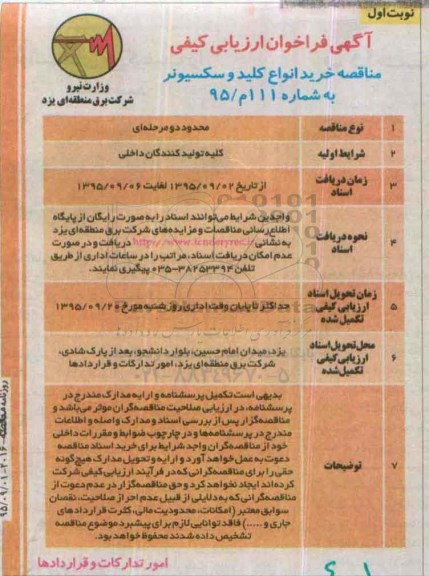 نوبت اول
آگهی فراخوان ارزیابی کیفی
مناقصه خرید انواع کلید و سکسیونر
به شماره ۱۱۱م/۹۵
وزارت نیرو
شرکت برق منطقه‌ای یزد
۱ نوع مناقصه محدود دو مرحله‌ای
۲ شرایط اولیه کلیه تولیدکنندگان داخلی
۳ زمان دریافت اسناد از تاریخ ۱۳۹۵/۰۹/۰۲ لغایت ۱۳۹۵/۰۹/۰۶
۴ نحوه دریافت اسناد
واجدین شرایط می‌توانند اسناد را به صورت رایگان از پایگاه
اطلاع‌رسانی مناقصات و مزایده‌های شرکت برق منطقه‌ای یزد
به نشانی http://www.tender.yrec.ir دریافت و در صورت
عدم امکان دریافت اسناد، مراتب را در ساعات اداری از طریق
تلفن ۳۸۲۵۳۳۹۴-۰۳۵ پیگیری نمایند.
۵ زمان تحویل اسناد
ارزیابی کیفی
تکمیل شده
حداکثر تا پایان وقت اداری روز شنبه مورخ ۱۳۹۵/۰۹/۲۰
۶ محل تحویل اسناد
ارزیابی کیفی
تکمیل شده
یزد، میدان امام حسین، بلوار دانشجو، بعد از پارک شادی،
شرکت برق منطقه‌ای یزد، امور تدارکات و قراردادها
۷ توضیحات
بدیهی است تکمیل پرسشنامه و ارایه مدارک مندرج در
پرسشنامه، در ارزیابی صلاحیت مناقصه‌گران موثر می‌باشد و
مناقصه‌گزار پس از بررسی اسناد و مدارک واصله و اطلاعات
مندرج در پرسشنامه‌ها و در چارچوب ضوابط و مقررات داخلی
خود از مناقصه‌گران واجد شرایط برای خرید اسناد مناقصه
دعوت به عمل خواهد آورد و ارایه و تحویل مدارک هیچ‌گونه
حقی را برای مناقصه‌گرانی که در فرآیند ارزیابی کیفی شرکت
کرده‌اند ایجاد نخواهد کرد و حق مناقصه‌گزار در عدم دعوت از
مناقصه‌گرانی که به دلایلی از قبیل عدم احراز صلاحیت، نقصان
سوابق معتبر (امکانات، محدودیت مالی، کثرت قراردادهای
جاری و .....) فاقد توانایی لازم برای پیشبرد موضوع مناقصه
تشخیص داده شدند محفوظ خواهد بود.
امور تدارکات و قراردادها